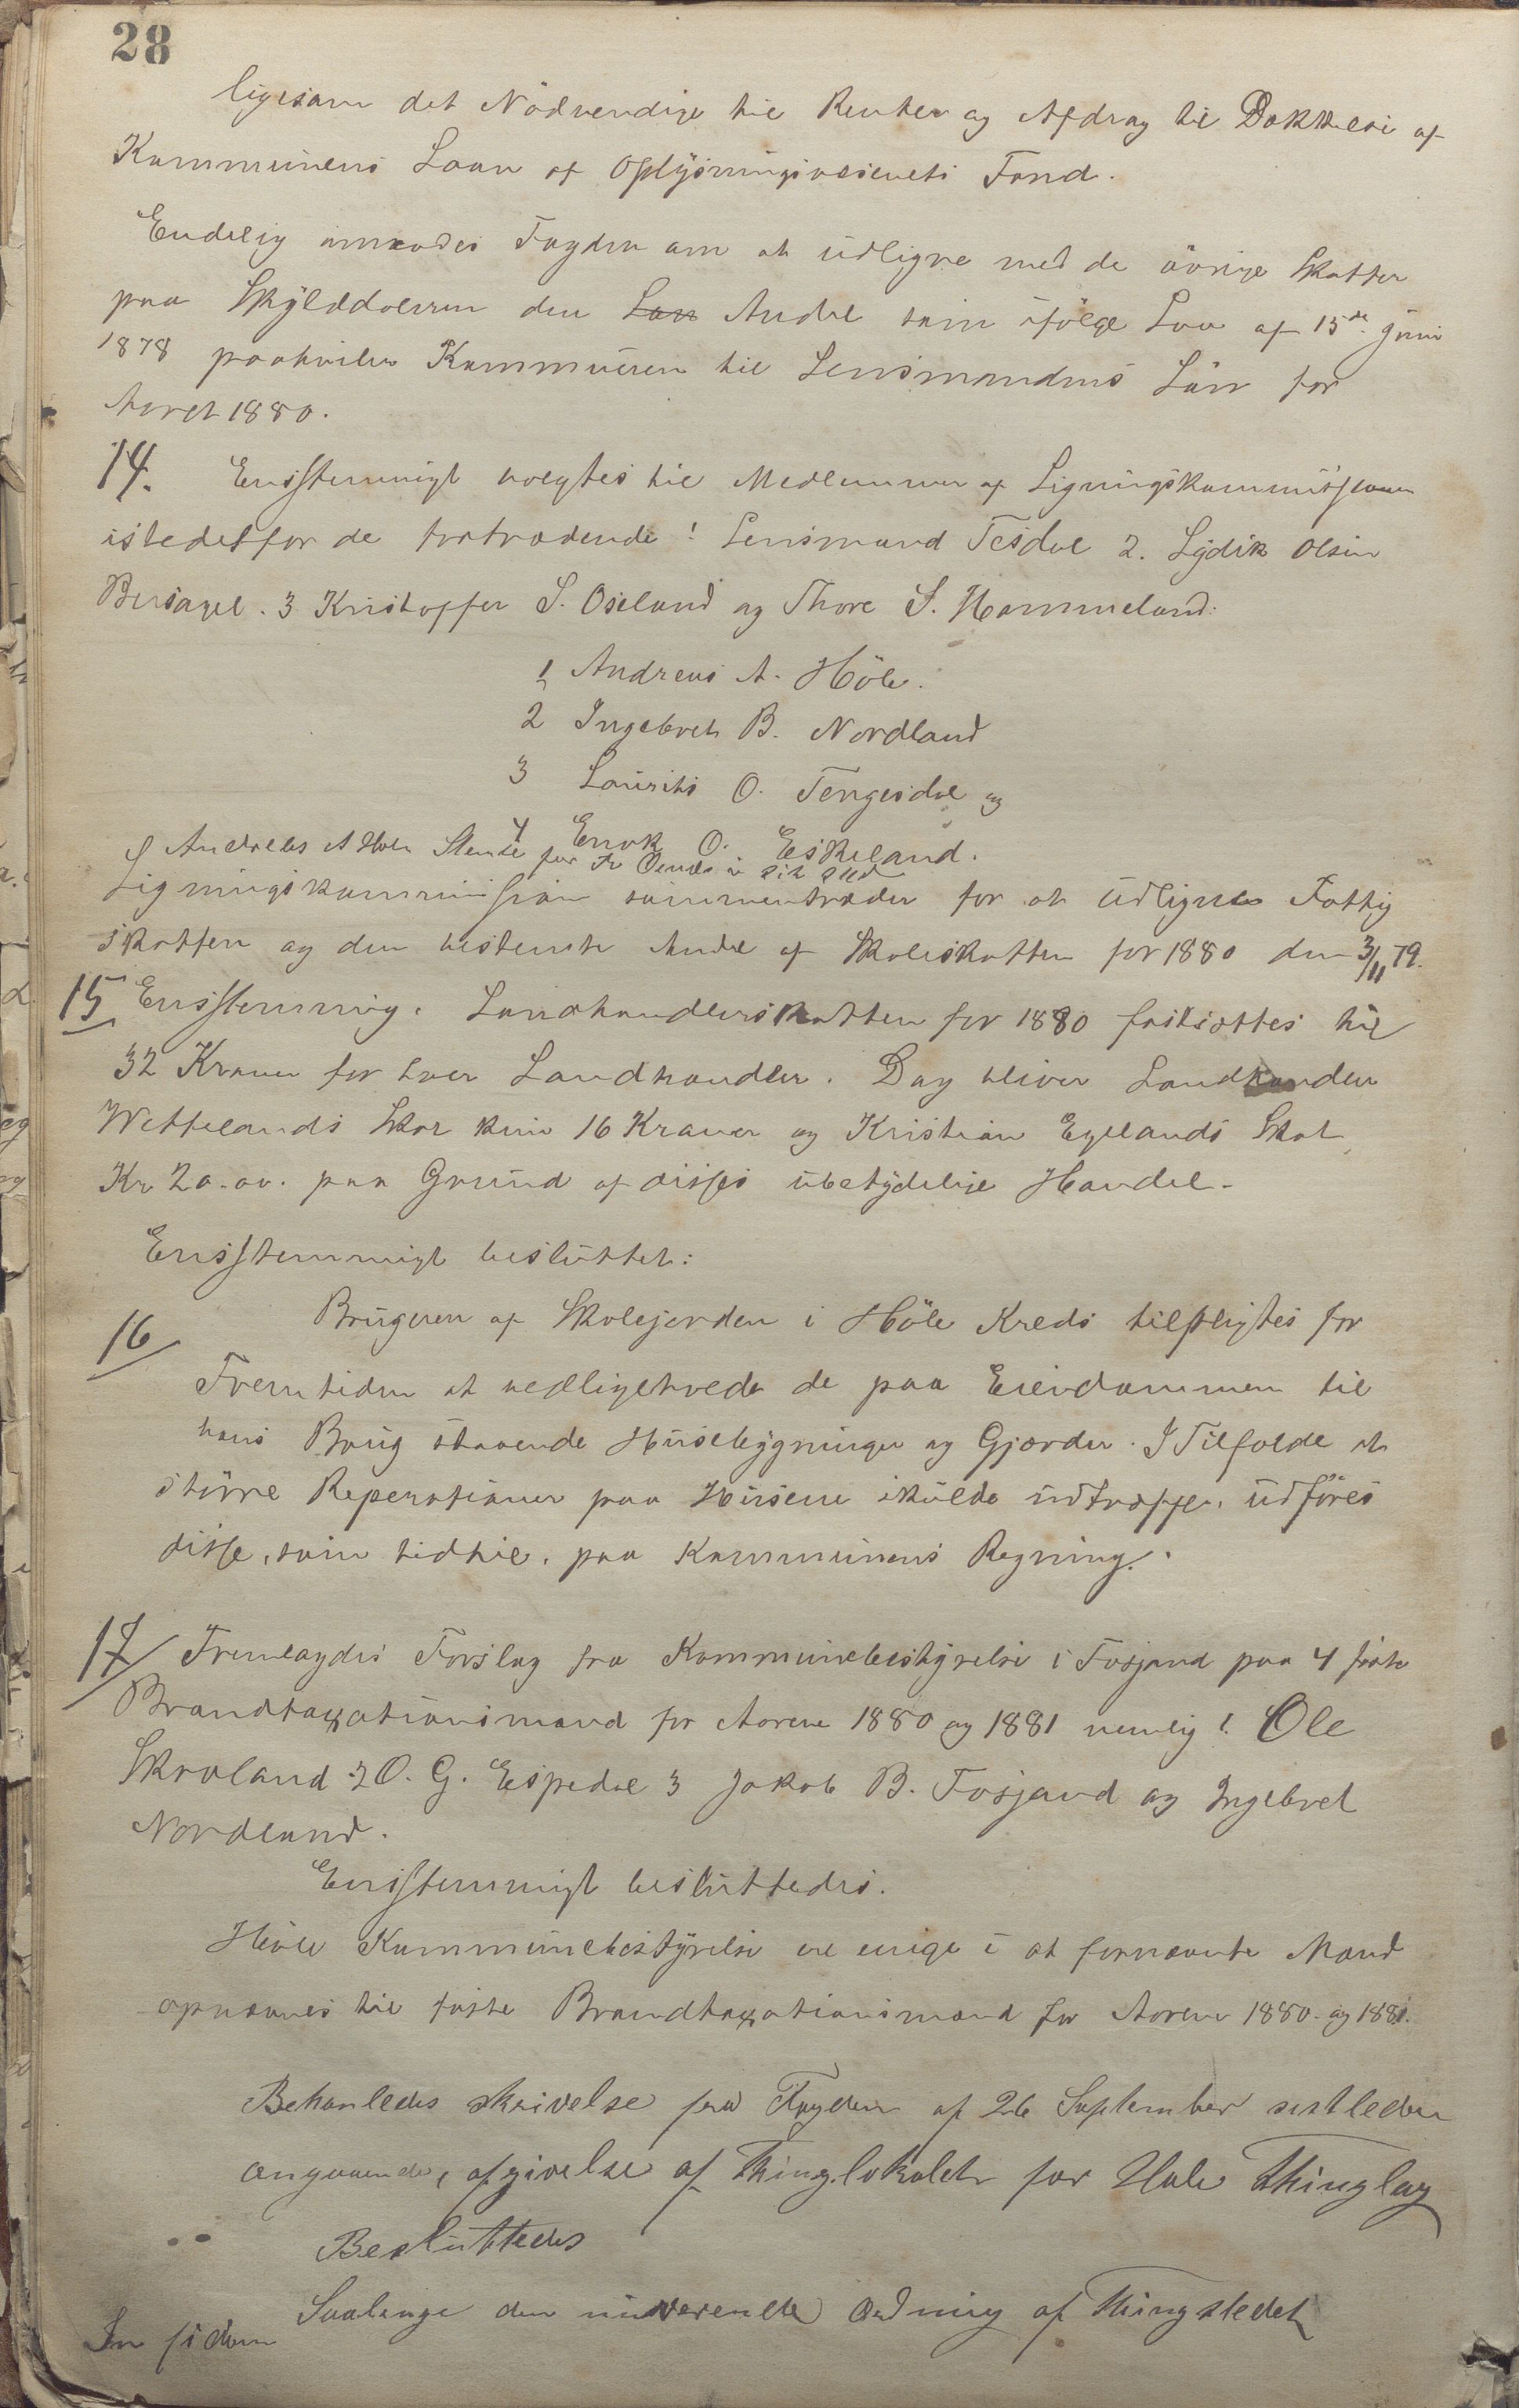 28
ligesaa det Nödvendige til Renter og Afdrag til Dækkelse af
Kommunens Laan af Oplysningsvæsenets Fond.
Endelig anmodes Fogden om at udligne med de övrige Skatter
paa Skylddelerne den Lön Andel som ifölge Lov af 15de Juni
1878 paahviler Kommunen til Lensmandens Lön for
Aaret 1880.
14. Enstemmigt valgtes til Medlemmer af Ligningskommissionen
istedetfor de fratrædende 1 Lensmand Tesdal 2. Lydik Olsen
Bersagel. 3 Kristoffer S. Oseland og Thore S. Hammeland:
1 Andreas A. Höle.
2 Ingebret B. Nordland
3 Laurits O. Tengesdal og
4 Enok O. Eskeland.
Andreas A Höle Stemte for
Ligningskommissionen sammentræder for at udligne Fattig
skatten og den bestemte Andel af Skoleskatten for 1880 den 3/11 79.
15 Enstemmig. Landhandlerskatten for 1880 fastsættes til
32 Kroner for hver Landhandler. Dog bliver Landhandler
Wettelands Skat kun 16 Kroner og Kristian Eyelands Skat
Kr 20.00. paa Grund af disses ubetydelige Handel.
Enstemmigt besluttet:
16 Brugeren af Skolejorden i Höle Kreds tilpligtes for
Fremtiden at vedligeholde de paa Eiendommen til
hans Brug staaende Husebygninger og Gjærder. I Tilfælde at
större Reperationer paa Husene skulde indtræffe, udföres
disse, som hidtil, paa Kommunens Regning.
17 Fremlagdes Forslag fra Kommunebestyrelse i Fosjand paa 4 faste
Brandtaxationsmænd for Aarene 1880 og 1881 nemlig 1. Ole
Skroland 2 O. G. Espedal 3 Jakob B. Fosjand og Ingebret
Nordland.
Enstemmigt besluttedes.
Höle Kommunebestyrelse er enige i at fornævnte Mænd
opnævnes til faste Brandtaxationsmænd for Aarene 1880 og 1881.
Behanledes skrivelse fra Fogden af 26 September sistleden
angaaende, afgivelse af Thinglokalet for Höle Thinglag
Besluttedes
Saalenge den nuværende Ordning af Thingstedet
In fidem